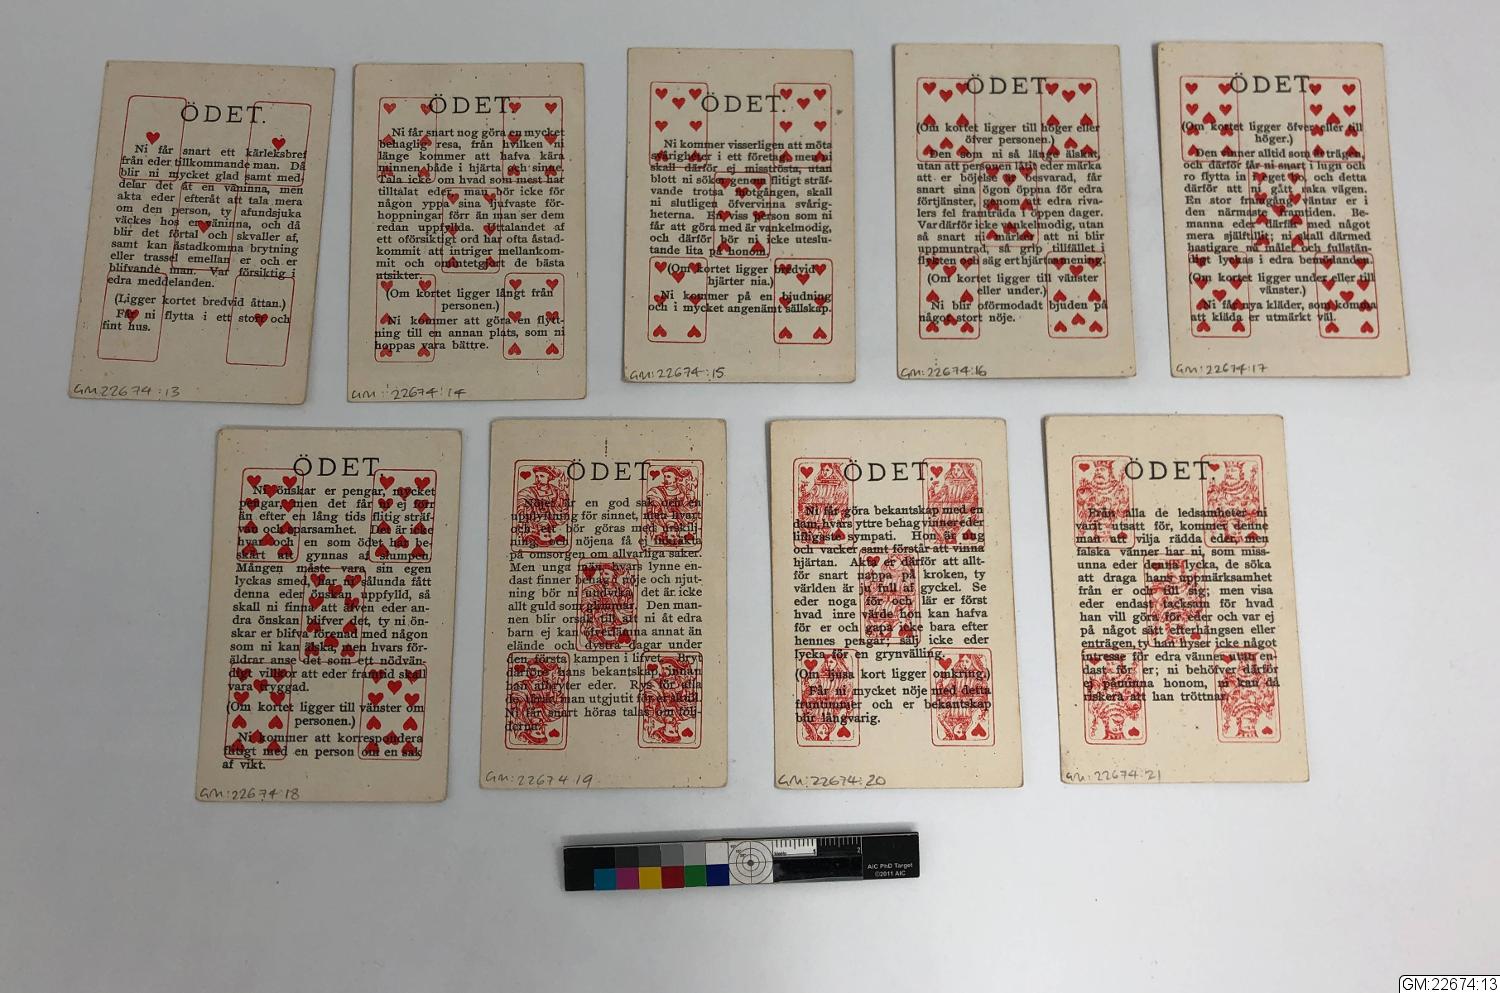 ÖDET.
Ni får snart ett kärleksbref
från eder tillkommande man. Då
blir ni mycket glad samt med-
delar det åt en väninna, men
akta eder efteråt att tala mera
om den person, ty afundsjuka
väckes hos er väninna, och då
blir det förtal och skvaller af,
samt kan åstadkomma brytning
eller trassel emellan er och er
blifvande man. Var försiktig i
edra meddelanden.
(Ligger kortet bredvid åttan.)
Får ni flytta i ett stort och
fint hus.
GM:22674:13
ÖDET.
Ni får snart nog göra en mycket
behaglig resa, från hvilken ni
länge kommer att hafva kära
minnen både i hjärta och sinne.
Tala icke om hvad som mest har
tilltalat eder, man bör icke för
någon yppa sina ljufvaste för-
hoppningar förr än man ser dem
redan uppfyllda. Uttalandet af
ett oförsiktigt ord har ofta åstad-
kommit att intriger mellankom-
mit och omintetgjort de bästa
utsikter.
(Om kortet ligger långt från
personen.)
Ni kommer att göra en flytt-
ning till en annan plats, som ni
hoppas vara bättre.
GM:22674:14
ÖDET.
Ni kommer visserligen att möta
svårigheter i ett företag, men ni
skall därför ej misströsta, utan
blott ni söker genom flitigt sträf-
vande trotsa motgången, skall
ni slutligen öfvervinna svårig-
heterna. En viss person som ni
får att göra med är vankelmodig,
och därför bör ni icke uteslu-
tande lita på honom.
(Om kortet ligger bredvid
hjärter nia.)
Ni kommer på en bjudning
och i mycket angenämt sällskap.
GM:22674:15
ÖDET.
(Om kortet ligger till höger eller
öfver personen.)
Den som ni så länge älskat,
utan att personen låtit eder märka
att er böjelse är besvarad, får
snart sina ögon öppna för edra
förtjänster, genom att edra riva-
lers fel framträda i öppen dager.
Var därför icke vankelmodig, utan
så snart ni märker att ni blir
uppmuntrad, så grip tillfället i
flykten och säg ert hjärtas mening.
(Om kortet ligger till vänster
eller under.)
Ni blir oförmodadt bjuden på
något stort nöje.
GM:22674:16
ÖDET.
(Om kortet ligger öfver eller till
höger.)
Den vinner alltid som är trägen,
och därför får ni snart i lugn och
ro flytta in i eget bo, och detta
därför att ni gått raka vägen.
En stor framgång väntar er i
den närmaste framtiden. Be-
manna eder därför med något
mera själftillit; ni skall därmed
hastigare nå målet och fullstän-
digt lyckas i edra bemödanden.
(Om kortet ligger under eller till
vänster.)
Ni får nya kläder, som komma
att kläda er utmärkt väl.
GM:22674:17
ÖDET.
Ni önskar er pengar, mycket
pengar, men det får ni ej förr
än efter en lång tids flitig sträf-
van och sparsamhet. Det är icke
hvar och en som ödet har be-
skärt att gynnas af slumpen.
Mången måste vara sin egen
lyckas smed, har ni sålunda fått
denna eder önskan uppfylld, så
skall ni finna att äfven eder an-
dra önskan blifver det, ty ni ön-
skar er blifva förenad med någon
som ni kan älska, men hvars för-
äldrar anse det som ett nödvän-
digt villkor att eder framtid skall
vara tryggad.
(Om kortet ligger till vänster om
personen.)
Ni kommer att korrespondera
flitigt med en person om en sak
af vikt.
GM:22674:18
ÖDET.
Nöjet är en god sak och en
upplyftning för sinnet, men hvart
och ett bör göras med urskilj-
ning, och nöjena få ej inskränka
på omsorgen om allvarliga saker.
Men unga män, hvars lynne en-
dast finner behag i nöje och njut-
ning bör ni undvika, det är icke
allt guld som glimmar. Den man-
nen blir orsak till att ni åt edra
barn ej kan öfverlämna annat än
elände och dystra dagar under
den första kampen i lifvet. Bryt
därför hans bekantskap, innan
han afbryter eder. Rys för alla
de tårar man utgjutit för
Ni får snart höras talas om följ-
derna.
GM:22674 19
ÖDET.
Ni får göra bekantskap med en
dam, hvars yttre behag vinner eder
lifligaste sympati. Hon är ung
och vacker samt förstår att vinna
hjärtan. Akta er därför att allt-
för snart nappa på kroken, ty
världen är ju full af gyckel. Se
eder noga för och lär er först
hvad inre värde hon kan hafva
för er och gapa icke bara efter
hennes pengar; sälj icke eder
lycka för en grynvälling.
(Om ljusa kort ligger omkring.)
Får ni mycket nöje med detta
fruntimmer och er bekantskap
blir långvarig.
GM:22674:20
ÖDET.
Från alla de ledsamheter ni
varit utsatt för, kommer denne
man att vilja rädda eder, men
falska vänner har ni, som miss-
unna eder denna lycka, de söka
att draga hans uppmärksamhet
från er och till sig; men visa
eder endast tacksam för hvad
han vill göra för eder och var ej
på något sätt efterhängsen eller
enträgen, ty han hyser icke något
intresse för edra vänner utan en-
dast för er; ni behöfver därför
ej påminna honom, ni kan då
riskera att han tröttnar.
GM:22674:21
AIC PhD Target
©2011 AIC
GM:22674:13